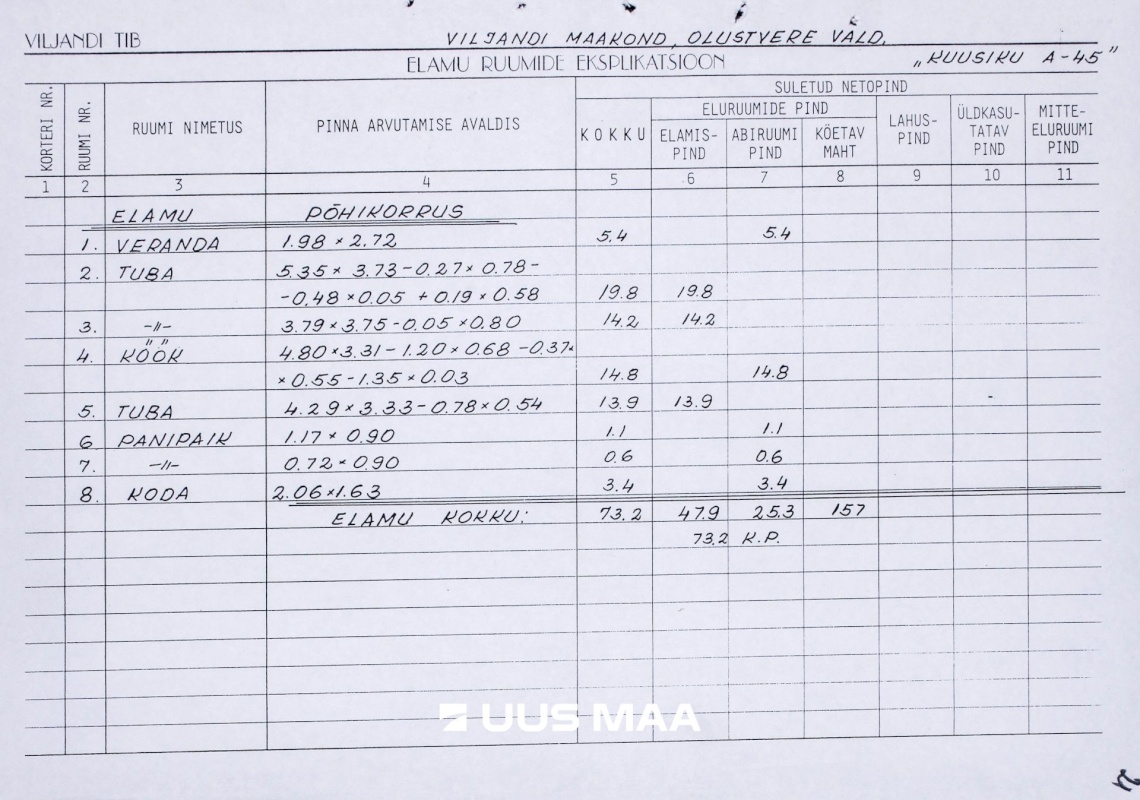 VILJANDI TIB VILJANDI MAAKOND, OLUSTVERE VALD.
ELAMU RUUMIDE EKSPLIKATSIOON „KUUSIKU A-45"
KORTERI NR. RUUMI NR. RUUMI NIMETUS PINNA ARVUTAMISE AVALDIS SULETUD NETOPIND
KOKKU ELURUUMIDE PIND LAHUS-PIND ÜLDKASU-TATAV PIND MITTE-ELURUUMI PIND
ELAMIS-PIND ABIRUUMI PIND KÖETAV MAHT
1 2 3 4 5 6 7 8 9 10 11
ELAMU PÕHIKORRUS
1. VERANDA 1.98 × 2.72 5.4 5.4
2. TUBA 5.35 × 3.73 - 0.27 × 0.78 -
-0.48 × 0.05 + 0.19 × 0.58 19.8 19.8
3. -//- 3.79 × 3.75 - 0.05 × 0.80 14.2 14.2
4. KÖÖK 4.80 × 3.31 - 1.20 × 0.68 - 0.37 ×
× 0.55 - 1.35 × 0.03 14.8 14.8
5. TUBA 4.29 × 3.33 - 0.78 × 0.54 13.9 13.9
6 PANIPAIK 1.17 × 0.90 1.1 1.1
7. -//- 0.72 × 0.90 0.6 0.6
8. KODA 2.06 × 1.63 3.4 3.4
ELAMU KOKKU: 73.2 47.9 25.3 157
73.2 K.P.
UUS MAA